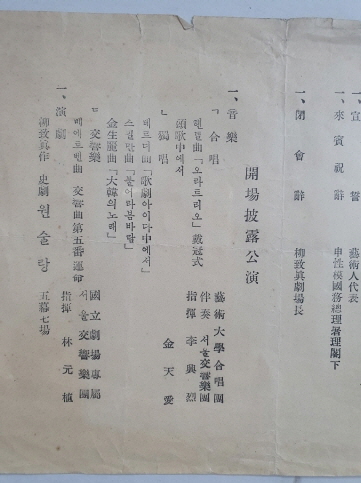 一、宣誓 藝術人代表
一、來賓祝辭 申性模國務總理署理閣下
一、閉會辭 柳致眞劇場長
開場披露公演
一、音樂
ㄱ 合唱 藝術大學合唱團
헨델曲「오라토리오」戴冠式 伴奏 서울交響樂團
頌歌中에서 指揮 李興烈
ㄴ 獨唱 金天愛
베르디曲「歌劇아이다中에서」
스퀼만曲「불어라봄바람」
金生麗曲「大韓의노래」
ㄷ 交響樂 國立劇場專屬
베에토벤曲 交響曲第五番運命 서울交響樂團
指揮 林元植
一、演劇
柳致眞作 史劇 원술랑 五幕七場